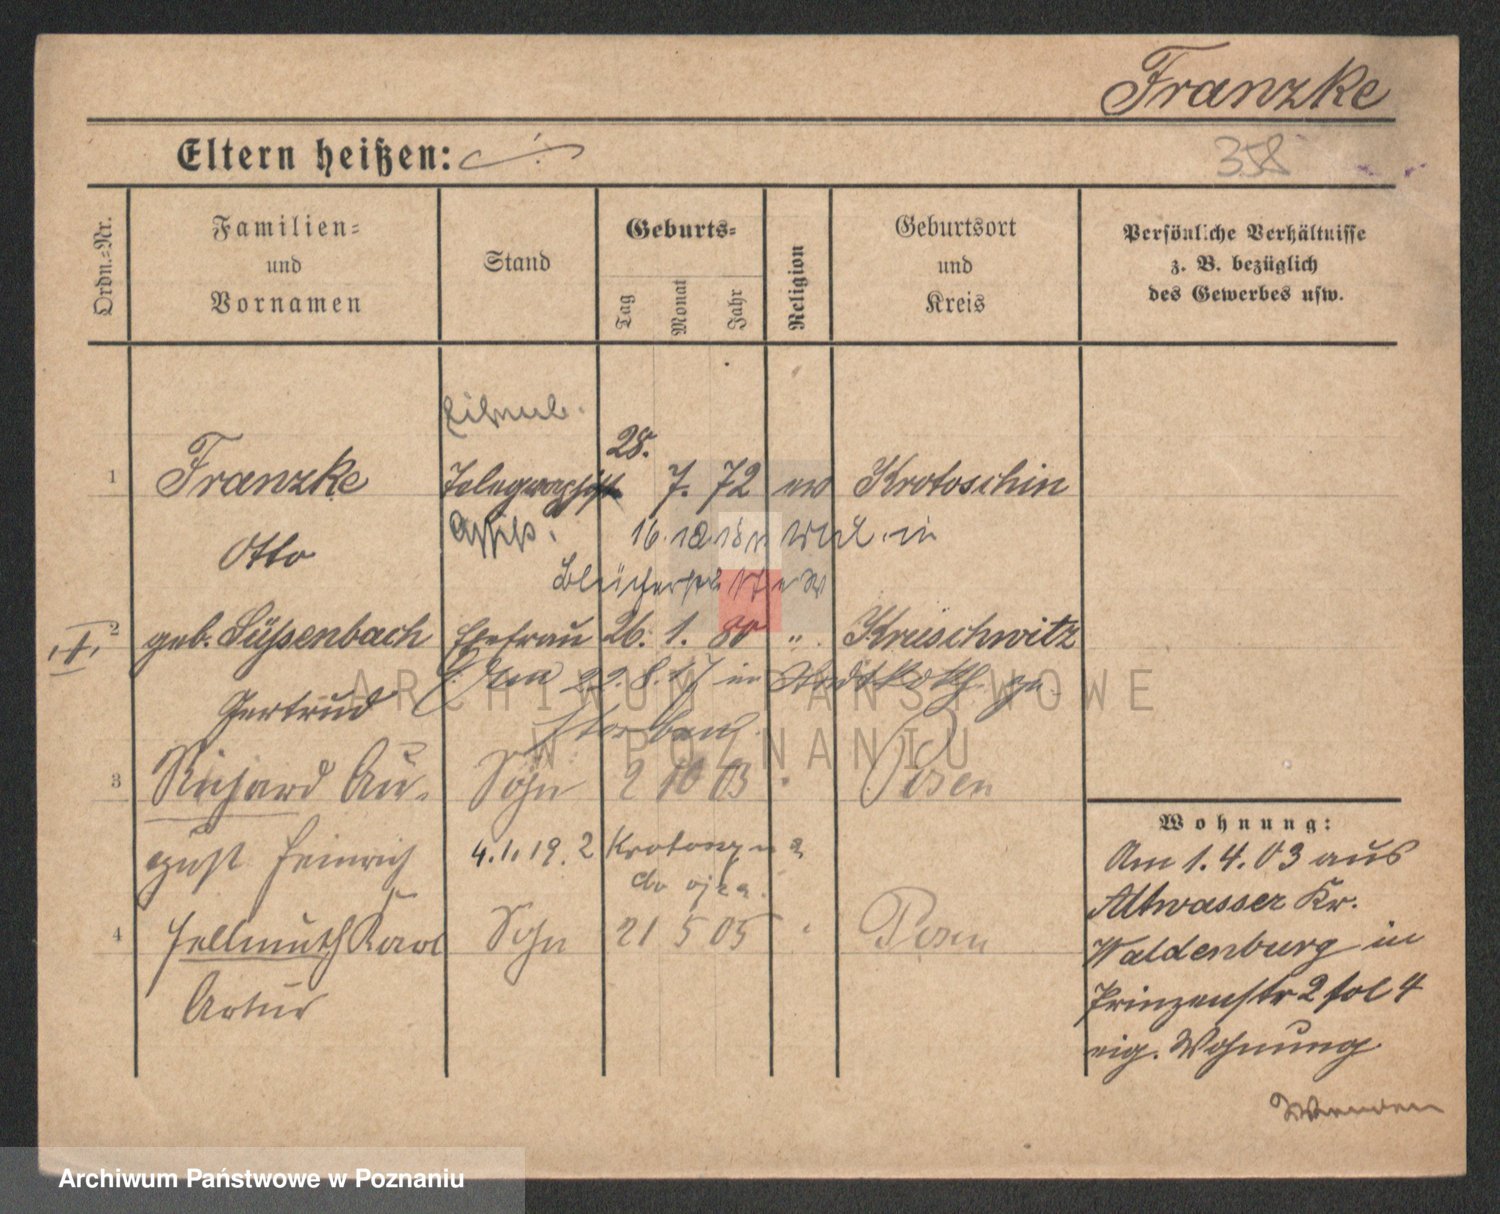 Franzke
Eltern heißen:
358
Ordn.-Nr.
Familien-
und
Vornamen
Stand
Geburts-
Tag
Monat
Jahr
Religion
Geburtsort
und
Kreis
Persönliche Verhältnisse
z. B. bezüglich
des Gewerbes usw.
1 Franzke Telegraphist 28. 7. 72 ev Krotoschin
Otto Assist. 16. in
2 geb. Süßenbach Ehefrau 26. 1. 80 " Kreischwitz
Gertrud am 22. 8. 17 in
storben
3 Richard Au- Sohn 2 10 03 " Posen
gust Heinrich 4. 1. 19. 2 Krotoszyna
do ojca
4 Hellmuth Karl Sohn 21 5 05 " Posen
Artur
Wohnung:
Am 1. 4. 03 aus
Altwasser Kr.
Waldenburg in
Prinzenstr 2 fol 4
eig. Wohnung
Wenden
ARCHIWUM PAŃSTWOWE
W POZNANIU
Archiwum Państwowe w Poznaniu